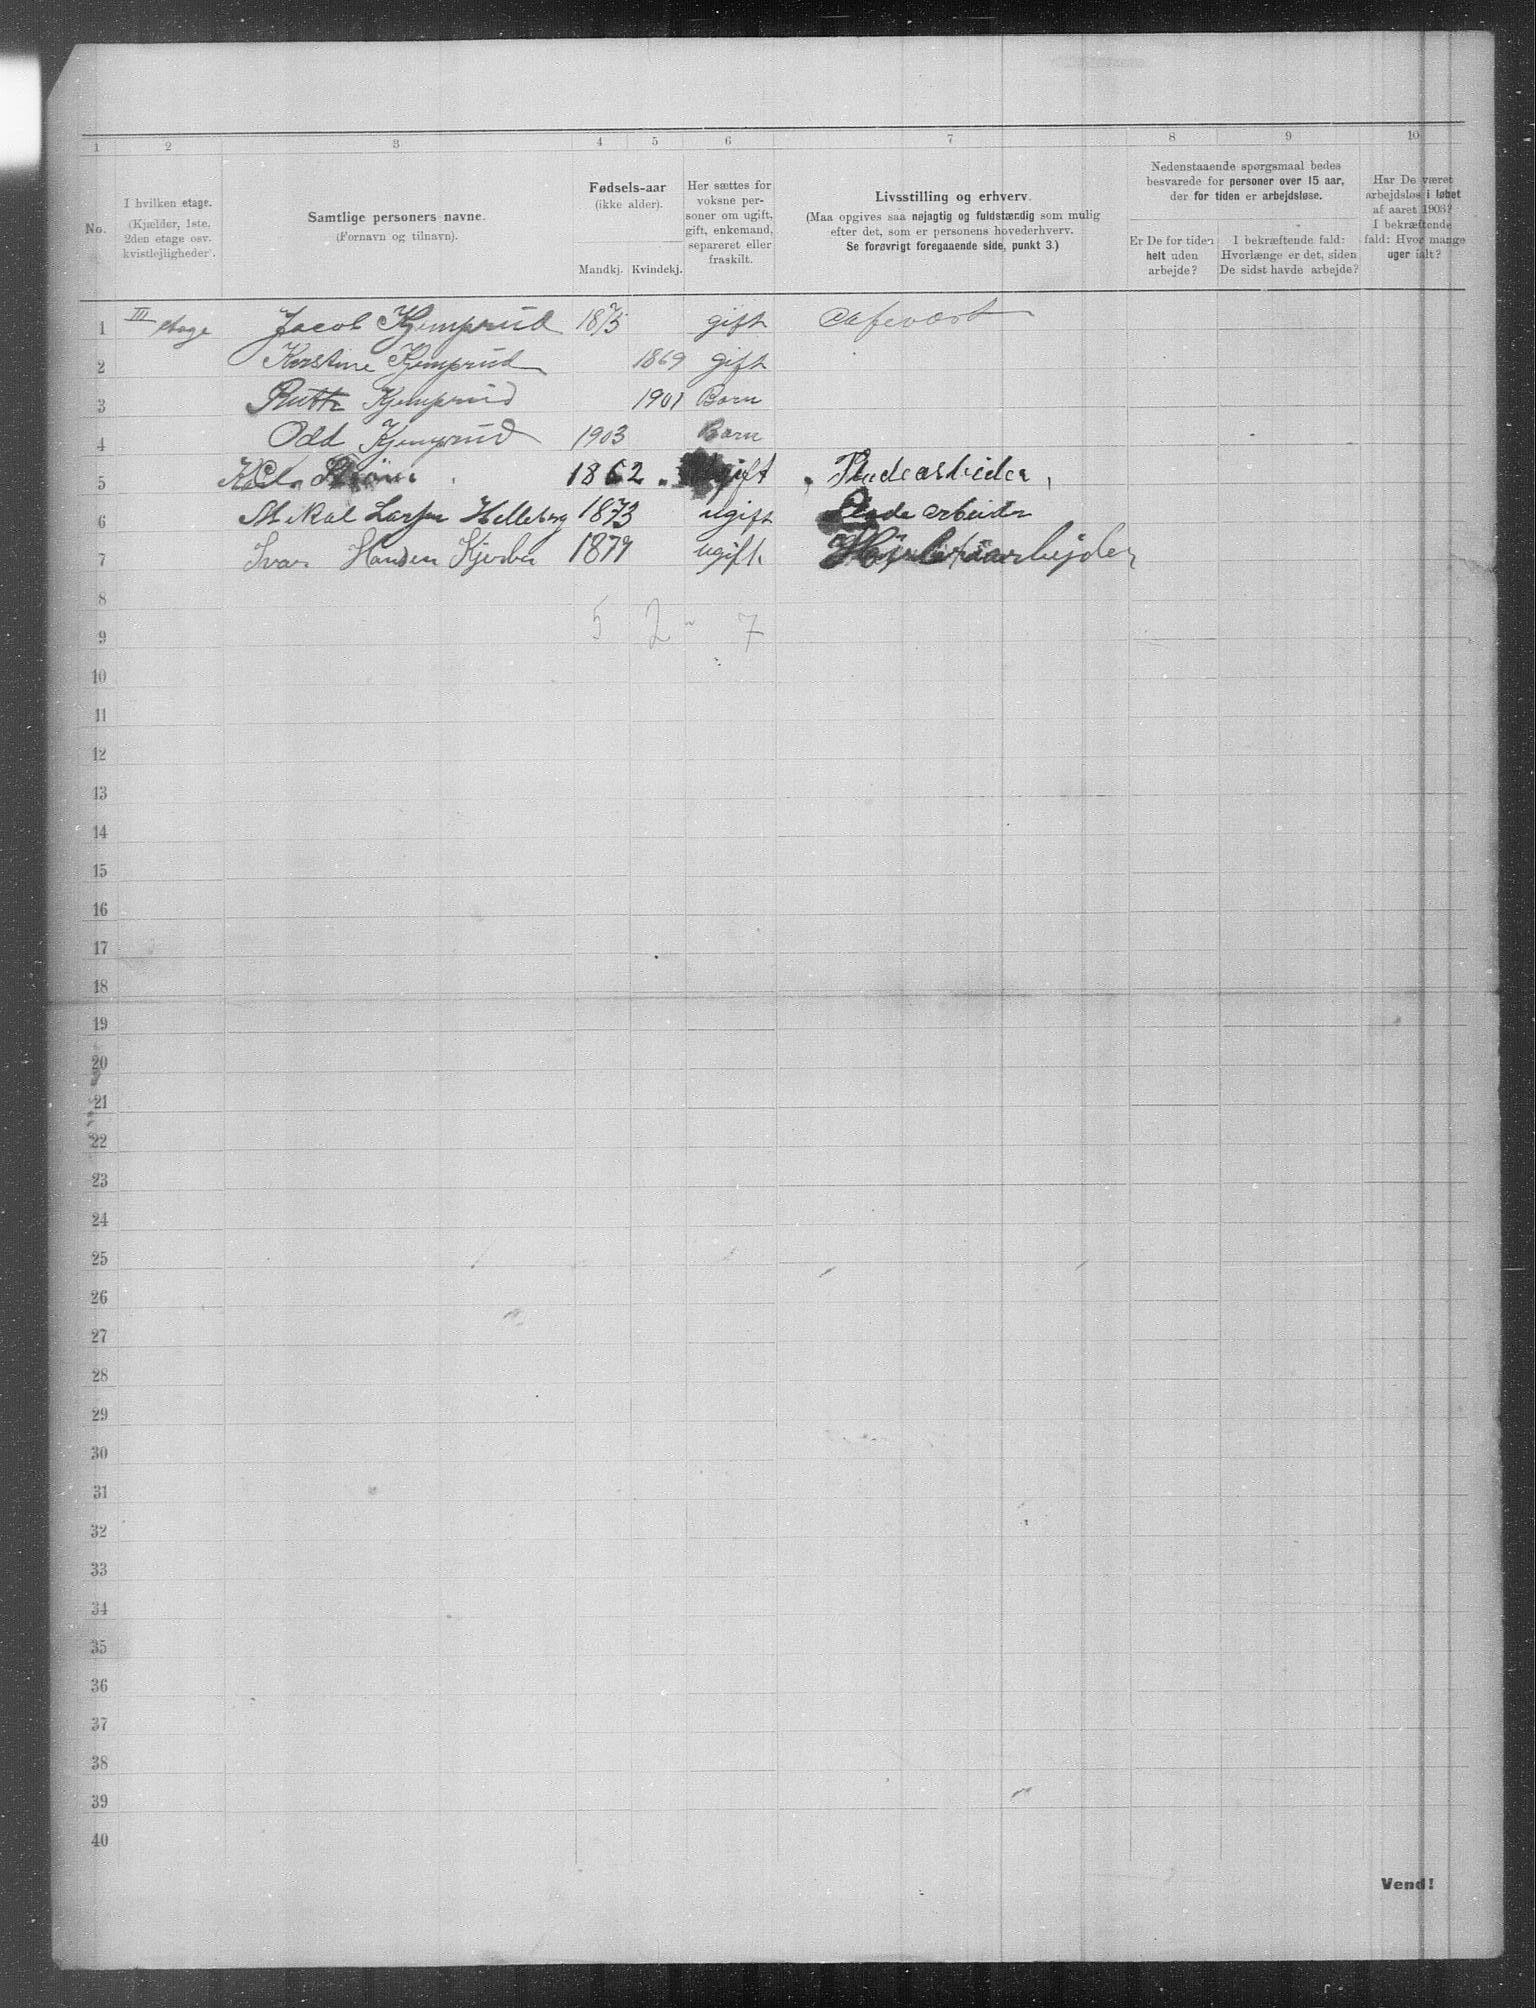 1 2 3 4 5 6 7 8 9 10
No.
I hvilken etage.
(Kjælder, 1ste,
2den etage osv.
kvistlejligheder.
Samtlige personers navne.
(Fornavn og tilnavn).
Fødsels-aar
(ikke alder).
Mandkj. Kvindekj.
Her sættes for
voksne per-
soner om ugift,
gift, enkemand,
separeret eller
fraskilt.
Livsstilling og erhverv.
(Maa opgives saa nøjagtig og fuldstændig som mulig
efter det, som er personens hovederhverv.
Se forøvrigt foregaaende side, punkt 3.)
Nedenstaaende spørgsmaal bedes
besvarede for personer over 15 aar,
der for tiden er arbejdsløse.
Er De for tiden
helt uden
arbejde?
I bekræftende fald:
Hvorlænge er det, siden
De sidst havde arbejde?
Har De været
arbejdsløs i løbet
af aaret 1903?
I bekræftende
fald: Hvor mange
uger ialt?
1 III etage Jacob Kjemprud 1875 gift Cafevært
2 Kirstine Kjemprud 1869 gift
3 Ruth Kjemprud 1901 Barn
4 Odd Kjemprud 1903 Barn
5 Karl 1862 ugift
6 Mikal Larsen Helleberg 1873 ugift arbeider
7 Ivar Hansen 1877 ugift
8
5 2 - 7
9
10
11
12
13
14
15
16
17
18
19
20
21
22
23
24
25
26
27
28
29
30
31
32
33
34
35
36
37
38
39
40
Vend!